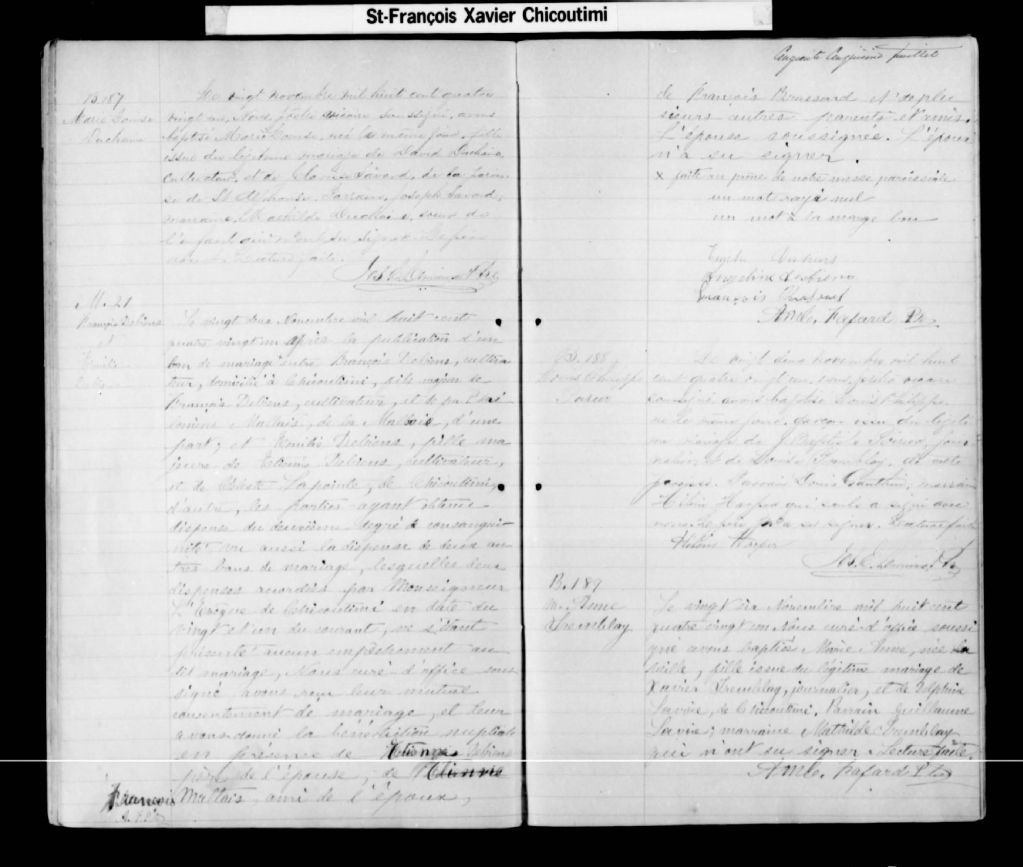 St-François Xavier Chicoutimi
B. 187
Marie Louise
Duchaine
Le vingt novembre mil huit cent quatre
vingt un, Nous prêtre vicaire soussigné, avons
baptisé Marie Louise, née le même jour, fille
issue du légitime mariage de David Duchaine
cultivateur, et de Savard, de la parois
se de St Alphonse. Parrain, Joseph Savard,
marraine, Mathilde Duchaine, soeur de
l'enfant qui n'ont su signer.
lecture faite.
Ptre
M. 21
François Debiens
et
Emilie
Debiens
Le vingt deux Novembre mil huit cent
quatre vingt un après la publication d'un
ban de mariage entre François Debiens, cultiva
teur, domicilié à Chicoutimi, fils majeur de
François Debiens, cultivateur, et de
Maltais, de la Malbaie, d'une
part; et Emilie Debiens, fille ma
jeure de Etienne Debiens, cultivateur,
et de Lapointe, de Chicoutimi,
d'autre, les parties ayant obtenu
dispense du deuxième degré de consangui-
nité vu aussi la dispense de deux au
tres bans de mariage, lesquelles deux
dispenses accordées par Monseigneur
L'Evêque de Chicoutimi en date du
vingt et un du courant, ne s'étant
présenté aucun empêchement au
tel mariage, Nous curé d'office sous
signé avons reçu leur mutuel
consentement de mariage, et leur
avons donné la bénédiction nuptiale
en présence de Etienne Debiens
père de l'épouse, de Etienne
François Maltais, ami de l'époux,
Cinquante Cinquième feuillet
de François Brassard et de plu
sieurs autres parents et amis.
L'épouse soussignée. L'époux
n'a su signer.
x faite au prône de notre messe paroissiale
un mot rayé nul
un mot à la marge bon
Debiens
François
Amb. Fafard Ptre
B. 188
Louis Philippe
Le vingt deux novembre mil huit
cent quatre vingt un, nous prêtre vicaire
soussigné avons baptisé Louis Philippe
né le même jour, garçon issu du légiti
me mariage de J. Baptiste jour
nalier, et de Louise Tremblay, de cette
paroisse. Parrain Louis Gauthier, marraine
Harper qui seule a signé avec
nous, le père n'a su signer. Lecture faite
Harper
Ptre
B. 189
M. Anne
Tremblay
Le vingt six Novembre mil huit cent
quatre vingt un Nous curé d'office soussi
gné avons baptisé Marie Anne, née la
veille, fille issue du légitime mariage de
Xavier Tremblay, journalier, et de Delphine
Savoie, de Chicoutimi. Parrain Guillaume
Savoie; marraine Mathilde Tremblay
qui n'ont su signer. Lecture faite.
Amb. Fafard Ptre